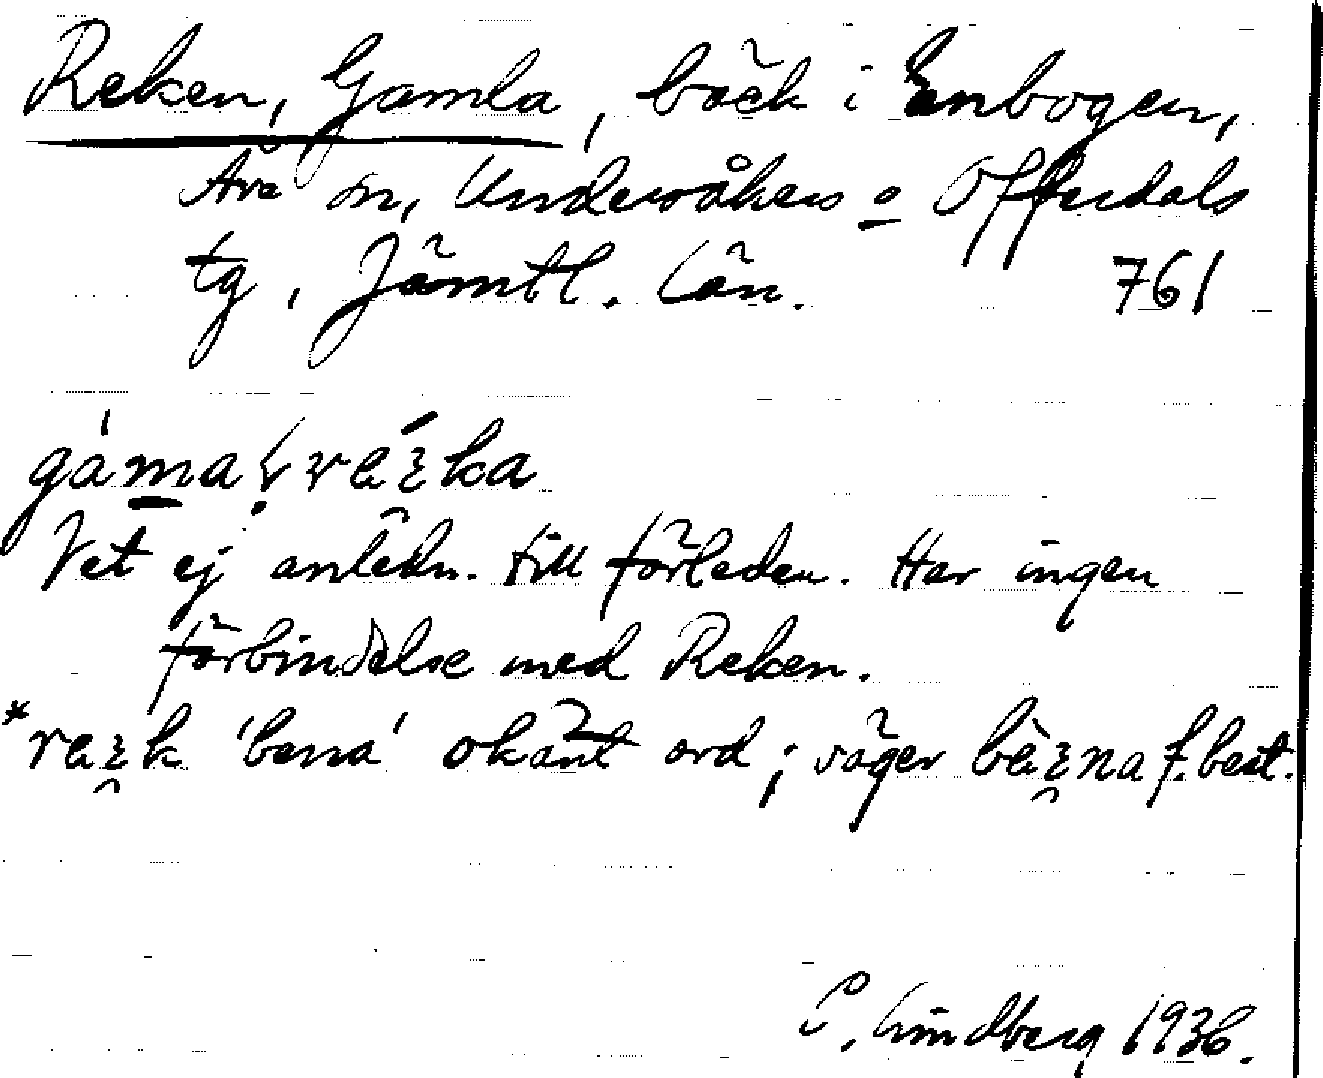 Reken, Gamla, bäck i Enbogen,
Åre sn, Undersåkers o Offerdals
tg, Jämtl. län. 761
Vet ej anledn. till förleden. Har ingen
förbindelse med Reken.
'bena' okänt ord; säger f. best.
C. Lindberg 1936.